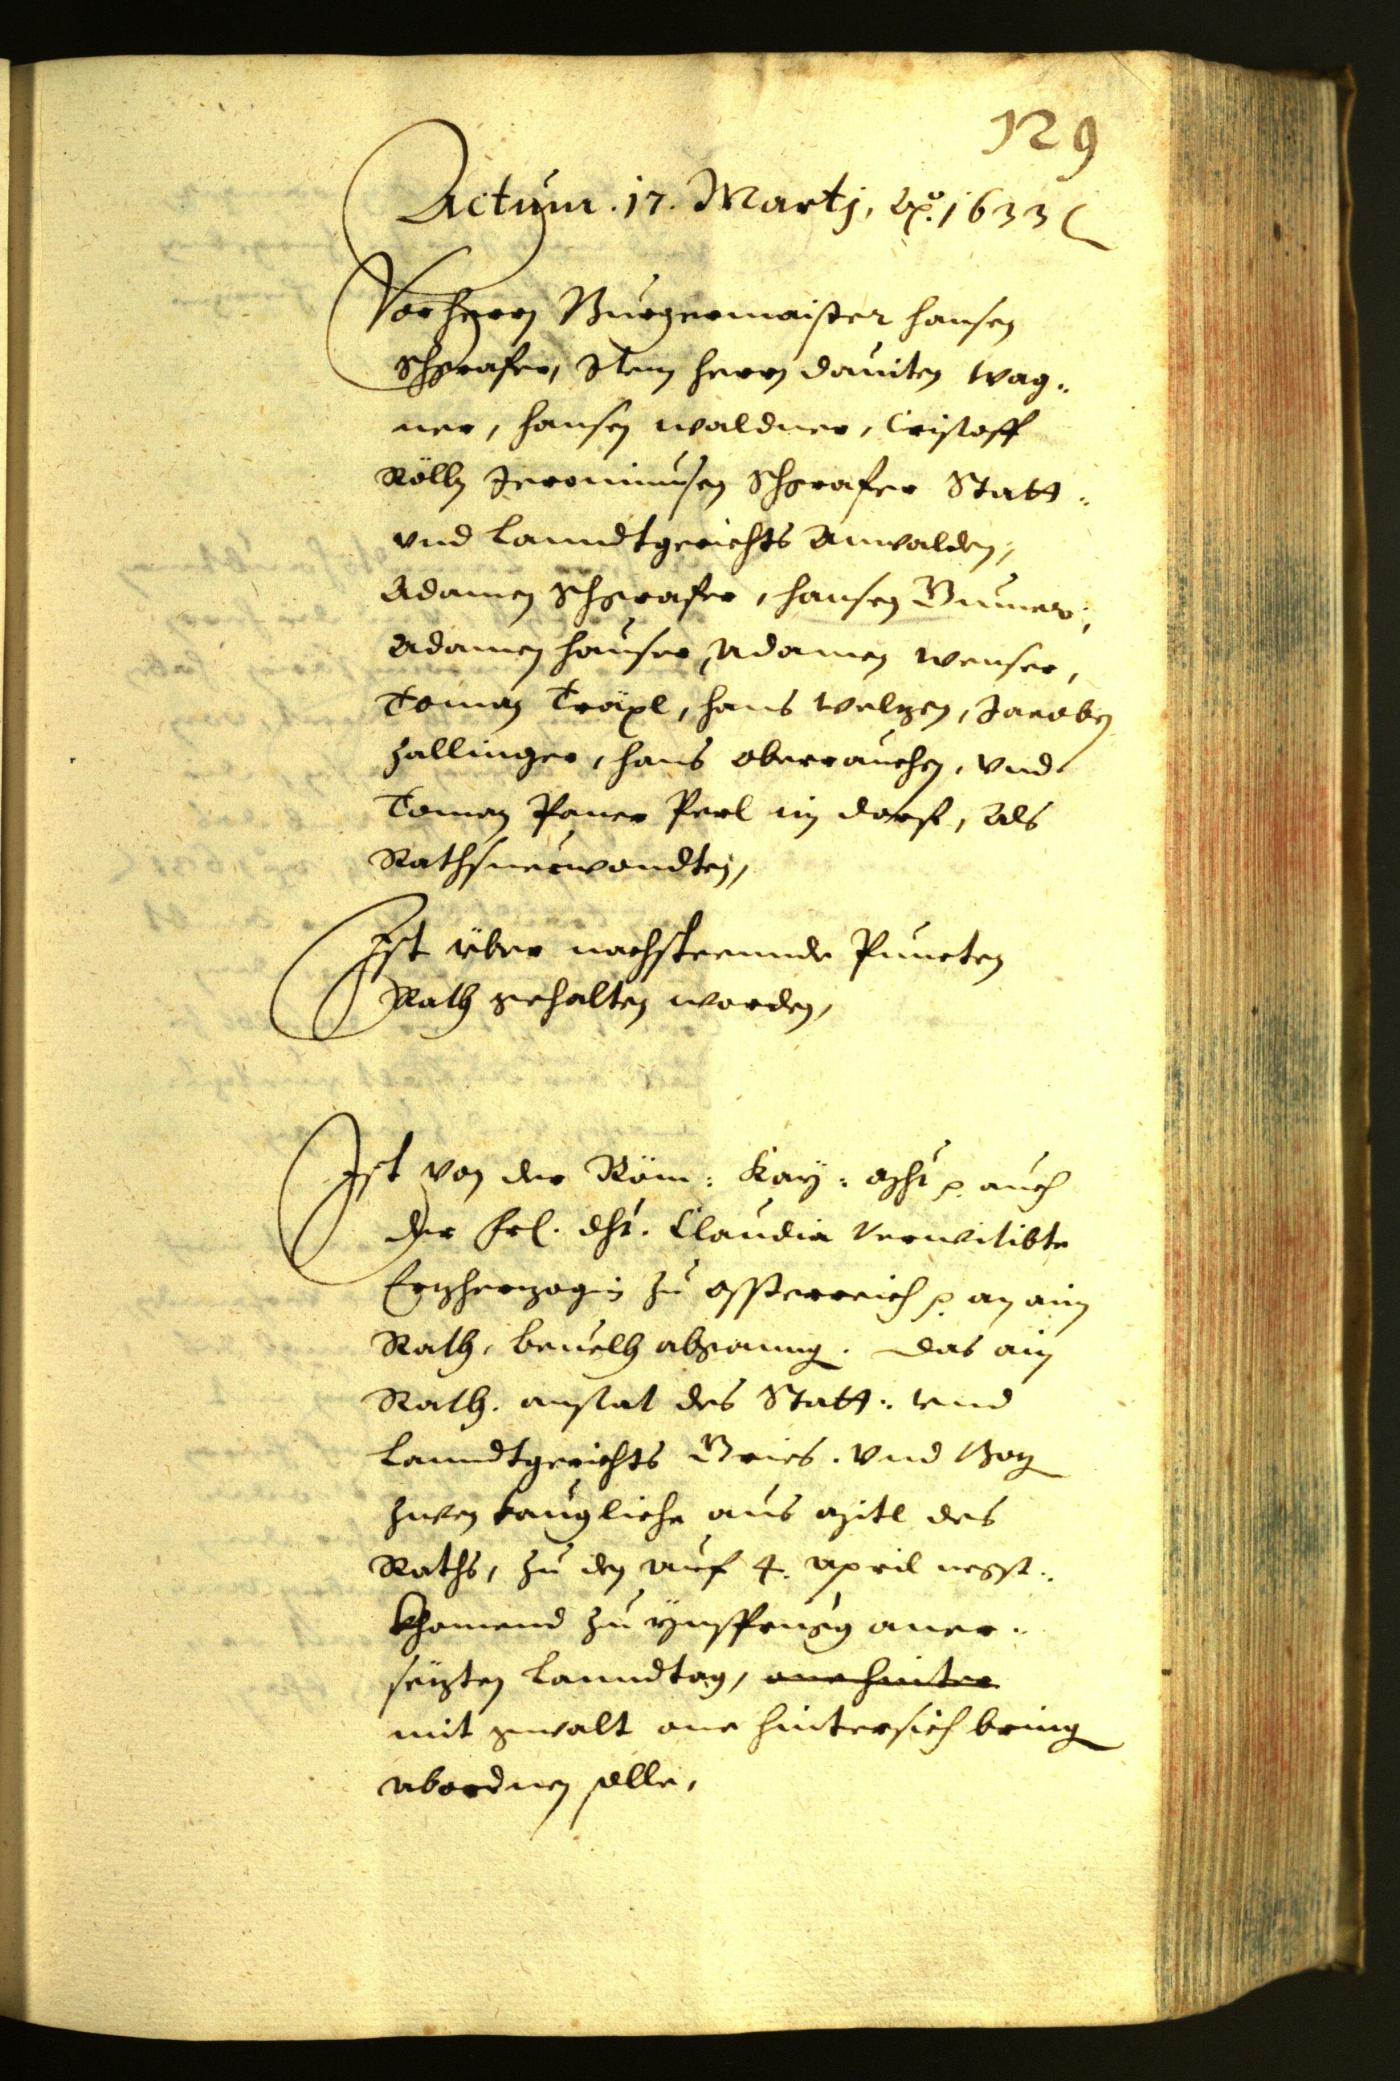 129
Actum. 17. Martj, Aõ. 1633
Vor Herrn Burgermaister Hansen
Schgrafer, Item Herrn Dauiten Wag-
ner, Hansen Waldner, Cristoff
Röllz Jeronimusen Schgrafer Statt-
vnd Lanndtgerichts Anwalden,
Adamen Schgrafer, Hansen
Adamen Hauser, Adamen Wenser,
Toman Träxl, Hans Welzen, Jacoben
Zallinger, Hans Oberrauchen, vnd
Toman Paner Perl im Dorff, Als
Rathsuerwondten,
Ist über nachsteennde Puncten
Rath gehalten worden,
Ist von der Röm: Kay: Mht p. auch
der Frl. Dht. Claudia verwitibte
Erzherzogin zu Össterreich p. an ain
Rath, beuelh abganng. das ain
Rath. anstat des Statt: vnd
Lanndtgerichts Gries. vnd Bozn
zwen taugliche aus Mitl des
Raths, zu den auf 4. April negst-
khomend zu Ynsprugg aner-
seizten Lanndtag, one hinter
mit gwalt one hintersich bring
abordnen solle,